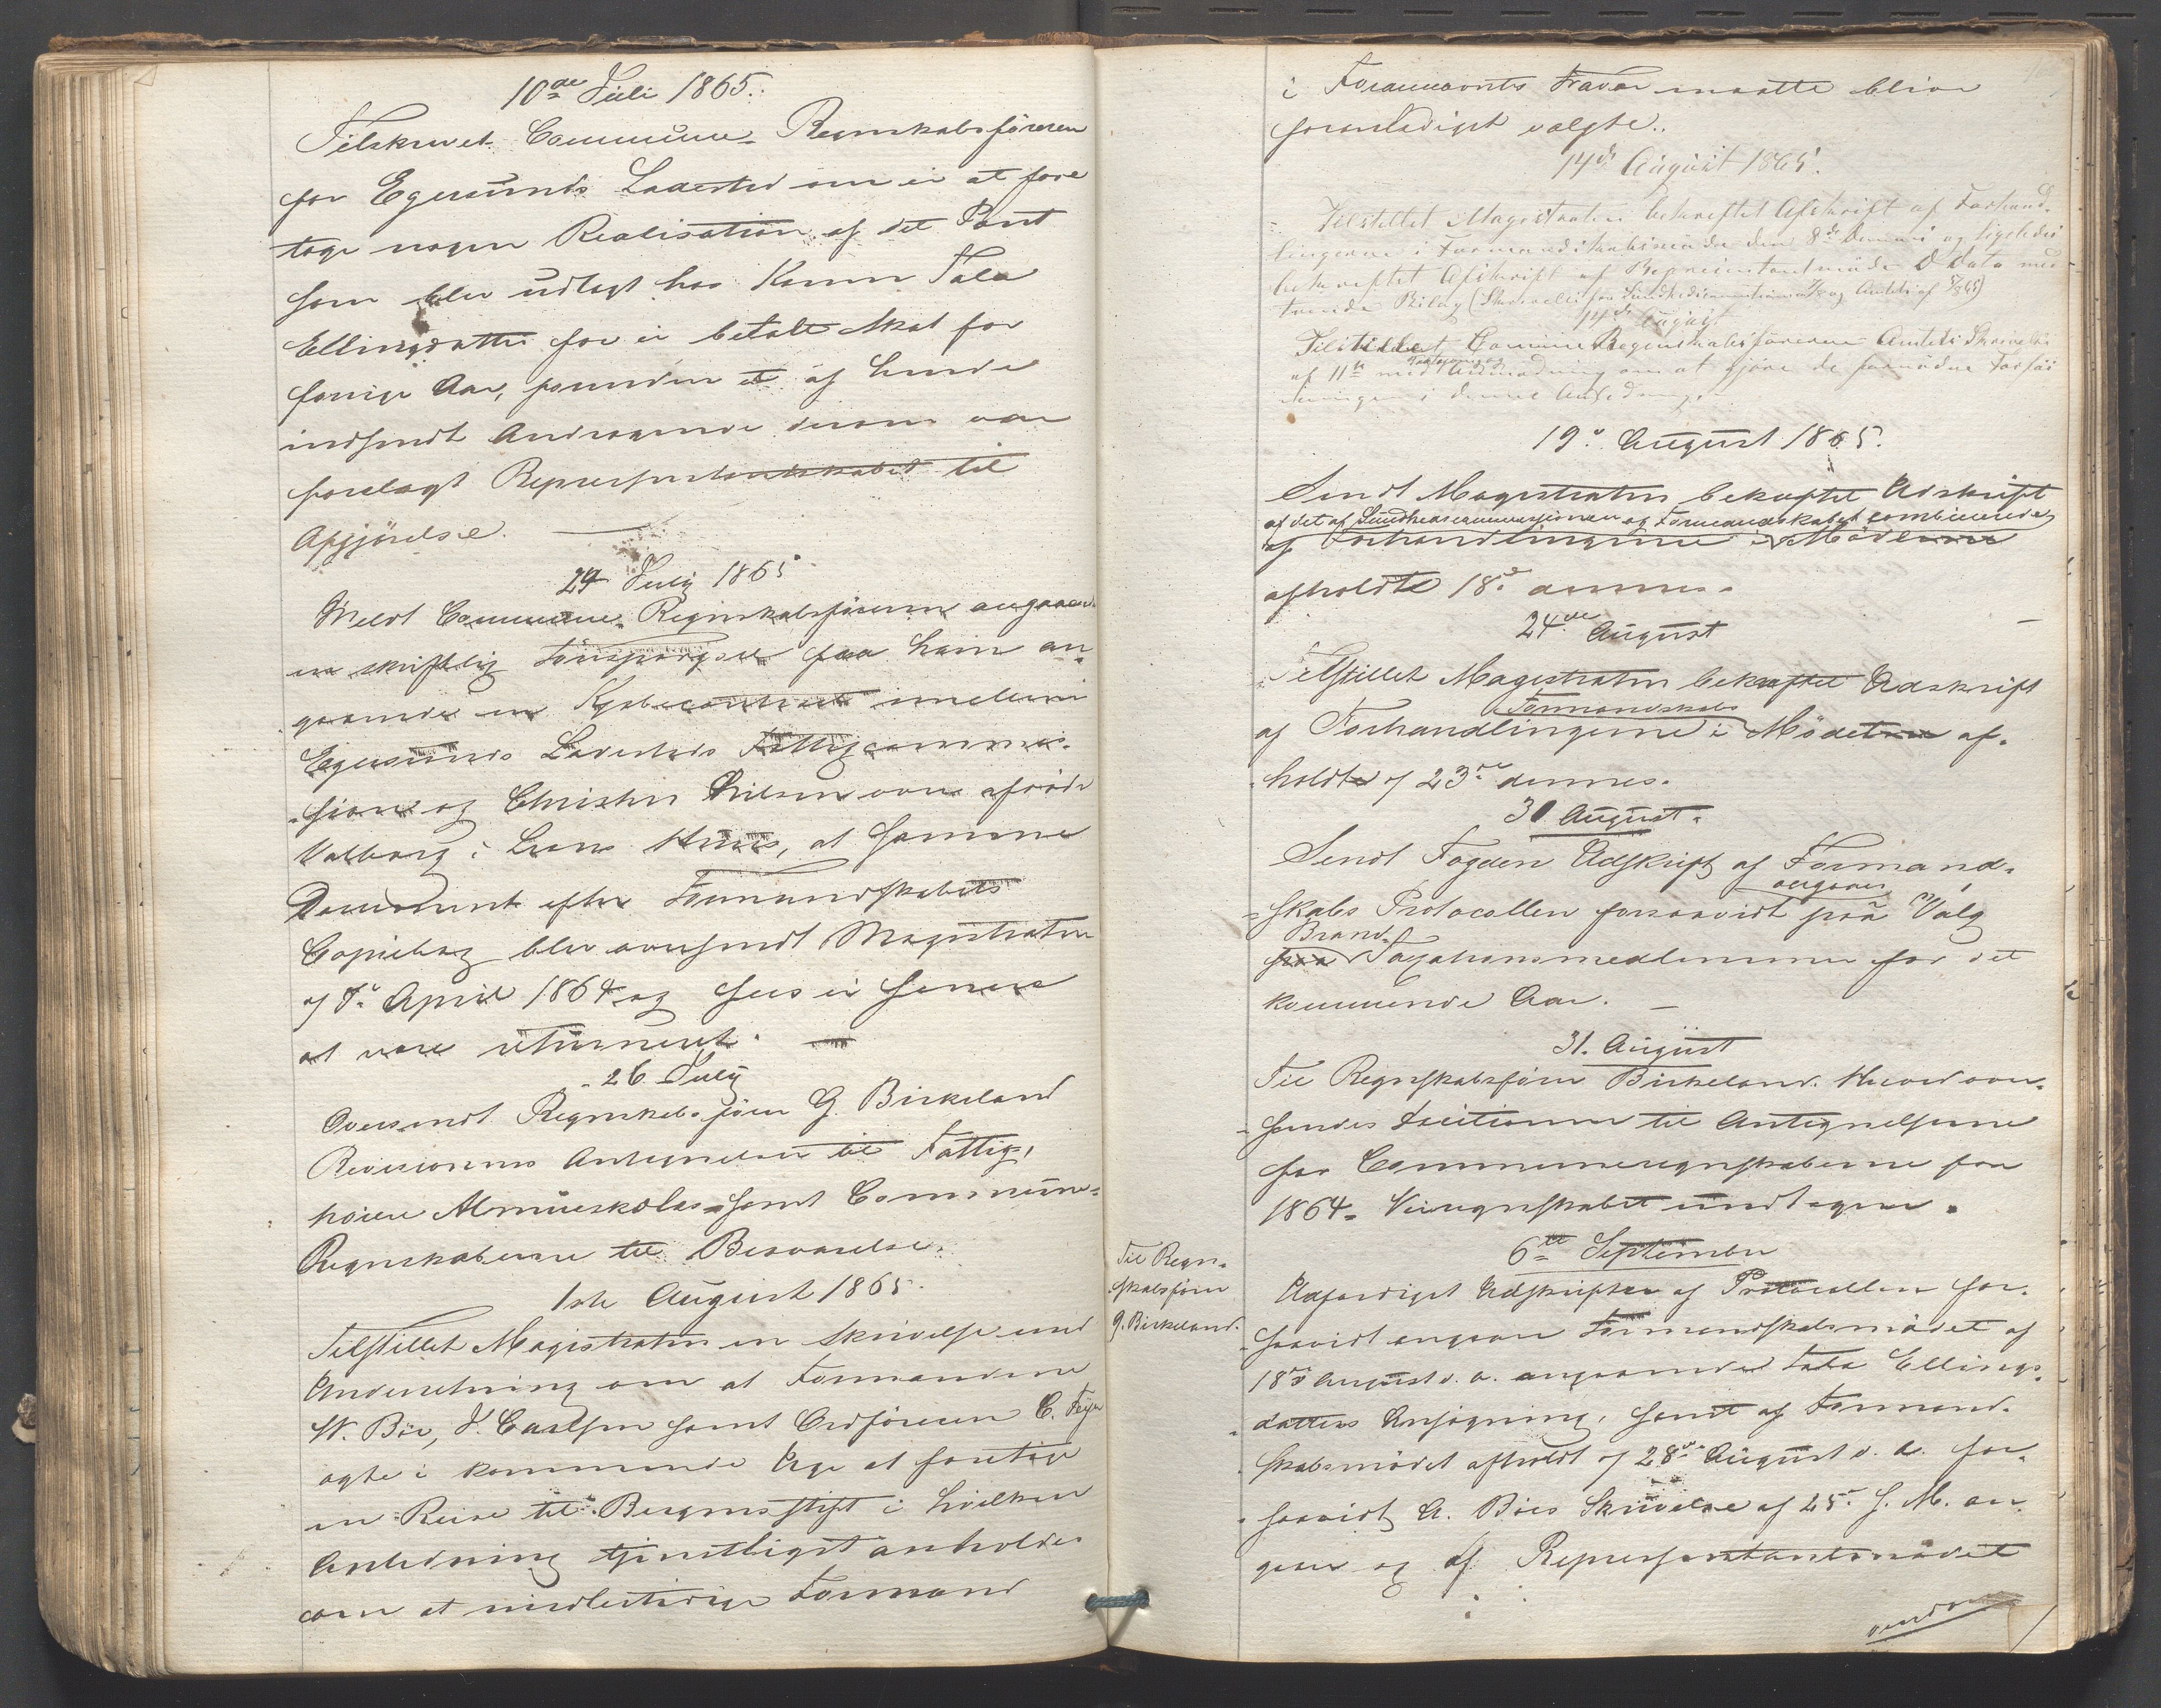 10de Juli 1865.
Tilskrevet Commune-Regnskabsføreren
for Egersunds Ladested om ei at fore
tage nogen Realisation af det Pant
som blev udlagt hos Konen Tala
Ellingsdatter for ei betalt Skat for
forrige Aar, forinden et af hende
indsendt Andragende derom var
forelagt Repræsentantskabet til
Afgjörelse.
24 July 1865
Meldt Commune-Regnskabsføreren angaaende
en skriftlig Forespørgsel fra ham an-
gaaende en Kjøbecontract imellem
Egersunds Ladesteds Fattigcommis-
sion og Christen Nilsen over afdøde
Valborg Hus, at samme
Document efter Formandskabets
Copiebog blev oversendt Magistraten
April 1864 og sees ei senere
at være returneret.
26 July
Oversendt Regnskabsfører G. Birkeland
Revisionens Antegnelser til Fattig,
høiere Almueskoles samt Commune-
Regnskaberne til Besvarelse.
1ste August 1865.
Tilstillet Magistraten en Skrivelse med
Underretning om at Formændene
W. Bøe, J. Carlsen samt Ordføreren C. Feyer
agte i kommende Uge at foretage
en Reise til Bergens Stift i hvilken
Anledning tjenstligst anholdes
om at midlertidige Formænd
i Formænds Fravær maatte blive
foranlediget valgte.
14de August 1865.
Tilstillet Magistraten bekreftet Afskrift af Forhand-
lingerne i Formandskabsmøde den 8de Dennes og ligeledes
bekreftet Afskrift af Repræsentantmøde D Dato med
tvende Bilag (Skrivelse fra Sundhedscommissionen og Amtets af
14de August
Tilstillet Commune Regnskabsføreren Amtets Skrivelse
af 11te med Anmodning om at gjøre de fornødne Forføi
ninger i denne Anledning.
19. August 1865.
Sendt Magistraten bekræftet Udskrift
af det af Sundhedscommissionen og Formandskabet combinerede
af Forhandlingerne i Møderne
afholdte 18de dennes.
24de August
Tilstillet Magistraten bekræftet Udskrift
Formandskabs
af Forhandlingerne i Mødet af-
holdte 23de dennes.
30 August.
Sendt Fogden Udskrift af Formand-
angaaer
skabs Protocollen forsaavidt paa Valg
Brand-
paa Taxationsmedlemmer for det
kommende Aar.
31. August
Til Regnskabsfører Birkeland. Hvorved over-
sendes Decisioner til Antegnelserne
for Communeregnskaberne for
1864. Veiregnskabet undtagen.
6te September
Til Regn-
skabsfører
G. Birkeland.
Udfærdiget Udskrifter af Protocollen for-
saavidt angaaer Formandskabsmødet af
18de August d. A. angaaende Tala Ellings-
datters Ansøgning, samt af Formand-
skabsmødet afholdt 28de August d. A. for-
saavidt A. Bøes Skrivelse af 25de s. M. an-
gaaer og af Repræsentantmødet